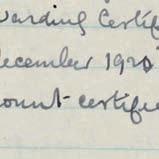 warding Certif
December 1920
ount certifie